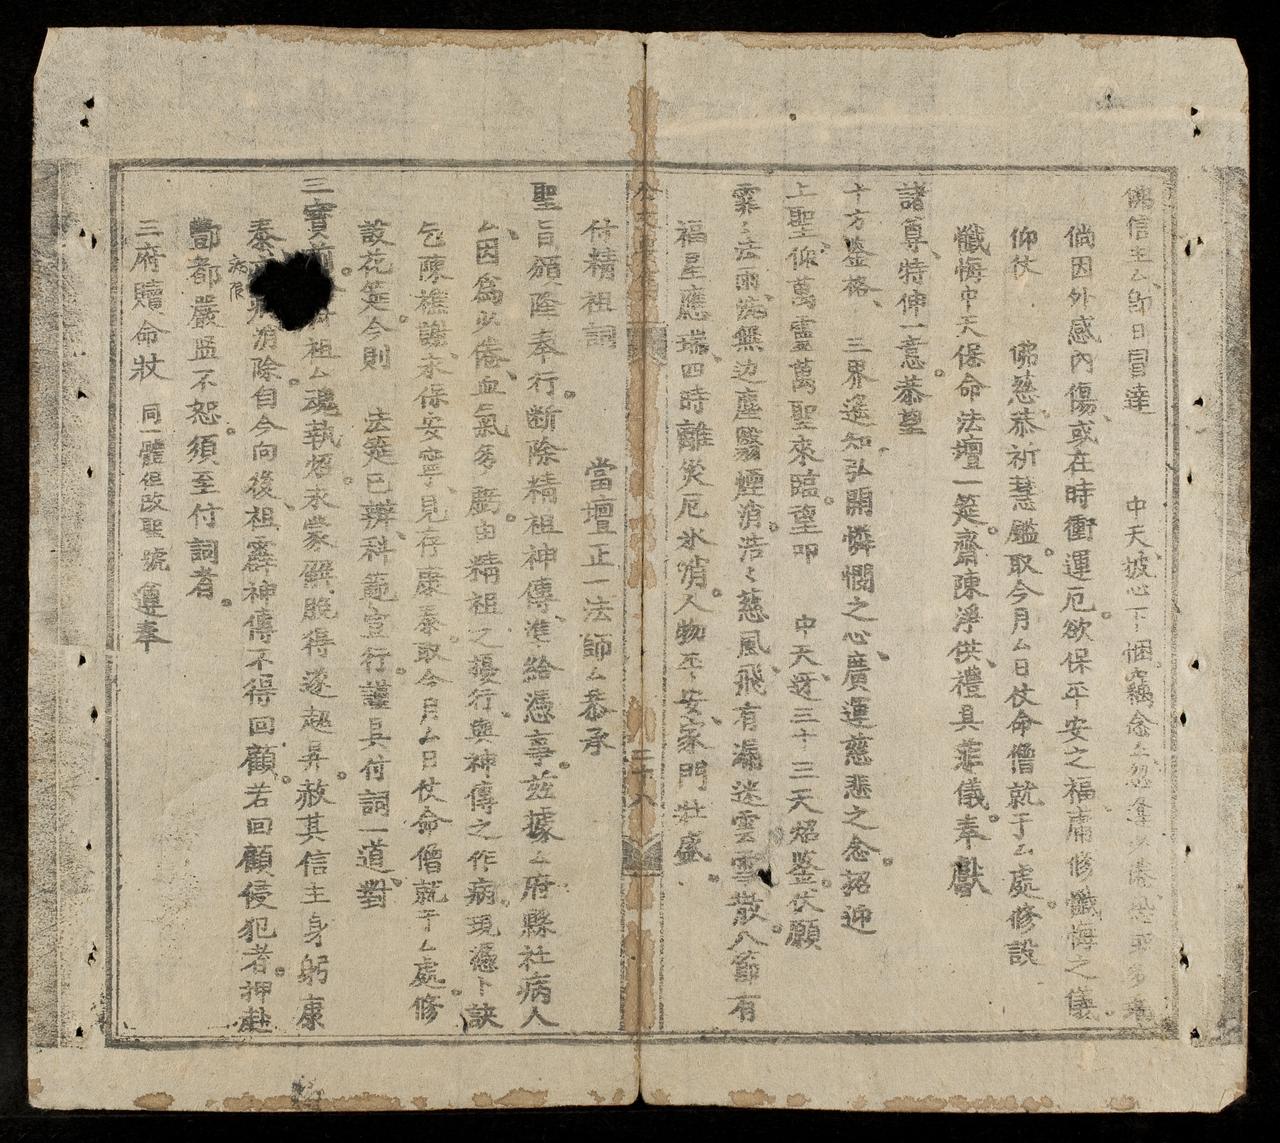 佛信主厶即日冒達 中天披心下悃竊念厶
倘因外感內傷或在時衝運厄欲保平安之福庸修懺悔之儀
仰仗 佛慈恭祈慧鑑取今月厶日仗命僧就于厶處修設
懺悔中天保命法壇一筵齋陳淨供禮具菲儀奉獻
諸尊特伸一意恭望
十方鉴格 三界遙知弘開憐憫之心廣運慈悲之念招迎
上聖仰萬靈萬聖來臨望叩 中天迓三十三天炤鉴伏願
霖〻法雨施無边塵翳煙消浩〻慈風飛有漏迷雲雪散八節有
福星應瑞四時離災厄氷消人物平〻安家門壯盛
三十八
付精祖詞 當壇正一法師厶恭承
聖旨頒降奉行断除精祖神傳準給憑事玆據厶府縣社病人
厶因爲 倦血氣 廣由精祖之擾行與神傳之作病現憑卜訣
乞陳 謝求保安寧見仔康泰取今月厶日仗命僧就于厶處修
設花筵今則 法筵已辨科範宣行謹具付詞一道對
三寶前 祖厶魂執炤永蒙觧脫得遂超昇赦其信主身躬康
泰 消除自今向後祖 神傳不得回顧若回顧侵犯者押赴
酆都嚴监不恕須至付詞者
三府贖命狀 同一體但改聖號 遵奉